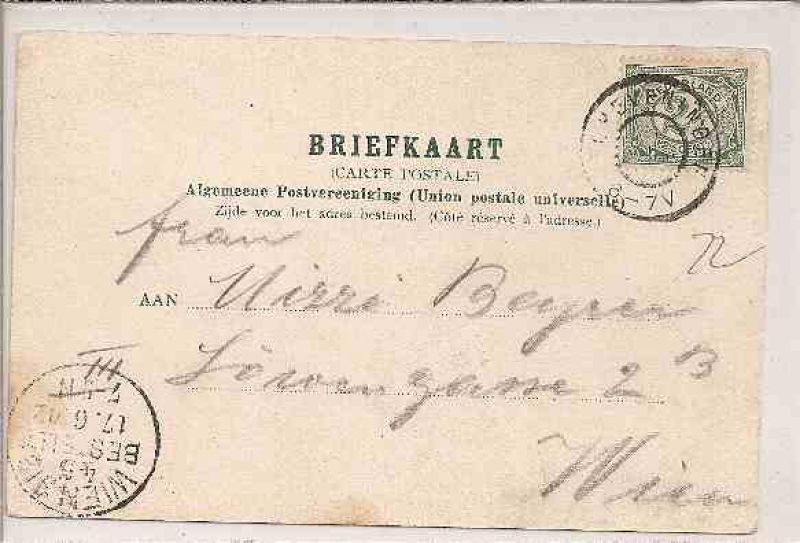 BRIEFKAART
(CARTE POSTALE)
Algemeene Postvereeniging (Union postale universelle)
Zijde voor het adres bestemd. (Côté réservé à l'adresse.)
Frau
AAN Mizzi Beyrer
III Löwengasse 2 B
Wien
8-7V
WIEN
45
BESTELLT
17.6